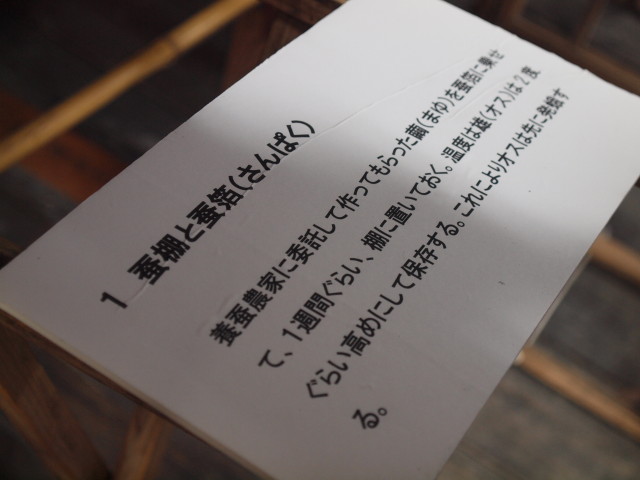 1 蚕棚と蚕箔(さんぱく)
養蚕農家に委託して作ってもらった繭(まゆ)を蚕箔に乗せ
て、1週間ぐらい、棚に置いておく。温度は雄(オス)は2度
ぐらい高めにして保存する。これによりオスは先に発蛾す
る。